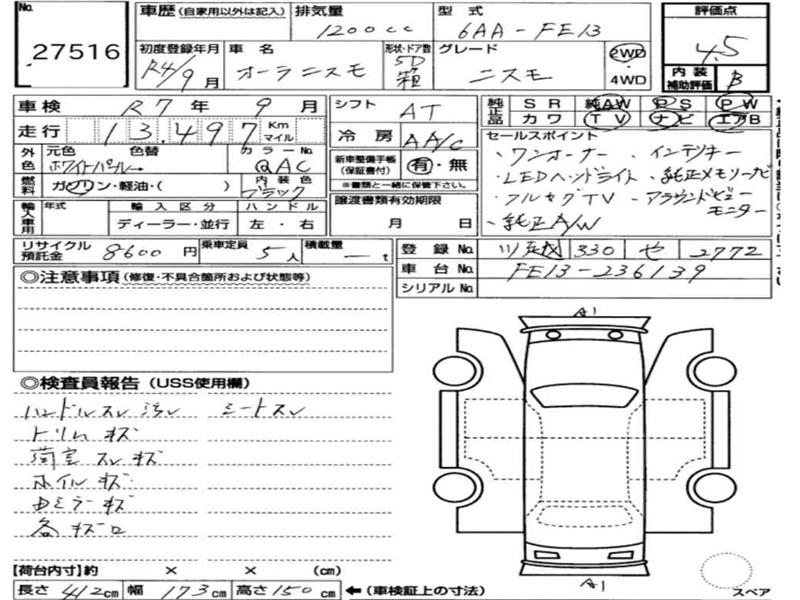 No. 27516
車歴(自家用以外は記入) 排気量 1200cc 型式 6AA-FE13 評価点 4.5
初度登録年月 R4/9月 車名 オーラニスモ 形状・ドア数 5D 箱 グレード ニスモ 2WD ・ 4WD 内装補助評価 B
車検 R7年 9月 シフト AT 純正品 SR 純AW PS PW
走行 13,497 Km マイル 冷房 AA/C カワ TV ナビ エアB
外色 元色 ホワイトパール 色替 カラーNo. QAC 新車整備手帳(保証書付) 有・無 ※書類と一緒に保管下さい。
燃料 ガソリン・軽油・( ) 内装色 ブラック
セールスポイント
・ワンオーナー ・インテリキー
・LEDヘッドライト ・純正メモリーナビ
・フルセグTV ・アラウンドビューモニター
・純正A/W
輸入車用 年式 輸入区分 ハンドル 譲渡書類有効期限
ディーラー・並行 左・右 月 日
リサイクル預託金 8600円 乗車定員 5人 積載量 ―t 登録No. 330 2772
車台No. FE13-236139
シリアルNo.
◎注意事項(修復・不具合箇所および状態等)
A1
◎検査員報告(USS使用欄)
ハンドルスレ汚レ シートスレ
トリムキズ
荷室スレキズ
ホイルキズ
キズ
各キズ
【荷台内寸】約 × × (cm)
長さ 412cm 幅 173cm 高さ 150cm ←(車検証上の寸法)
A1
スペア